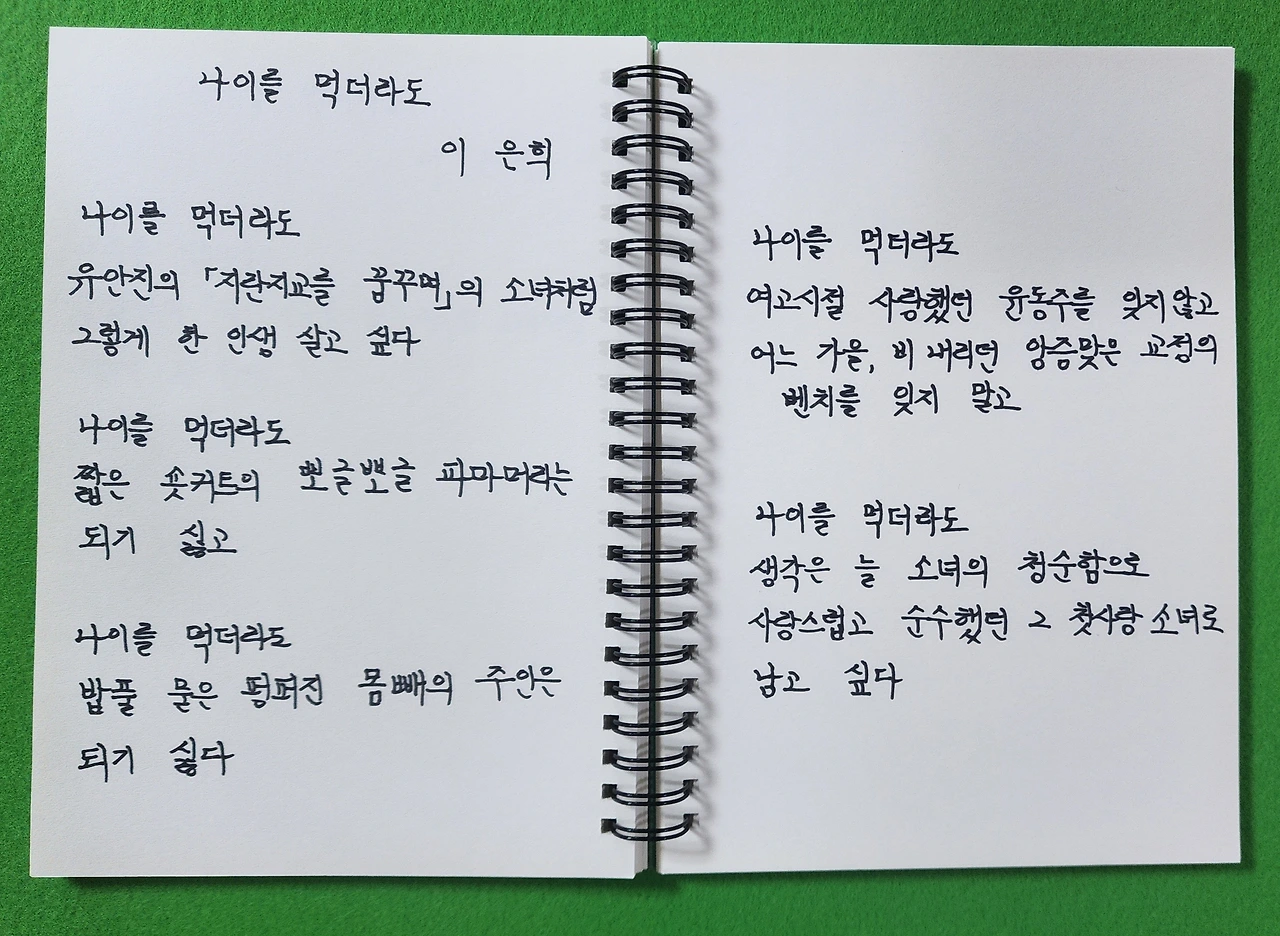 나이를 먹더라도
이 은희
나이를 먹더라도
유안진의 「지란지교를 꿈꾸며」의 소녀처럼
그렇게 한 인생 살고 싶다
나이를 먹더라도
짧은 숏커트의 뽀글뽀글 파마머리는
되기 싫고
나이를 먹더라도
밥풀 묻은 펑퍼진 몸빼의 주인은
되기 싫다
나이를 먹더라도
여고시절 사랑했던 윤동주를 잊지않고
어느 가을, 비 내리던 앙증맞은 교정의
벤치를 잊지 말고
나이를 먹더라도
생각은 늘 소녀의 청순함으로
사랑스럽고 순수했던 그 첫사랑 소녀로
남고 싶다